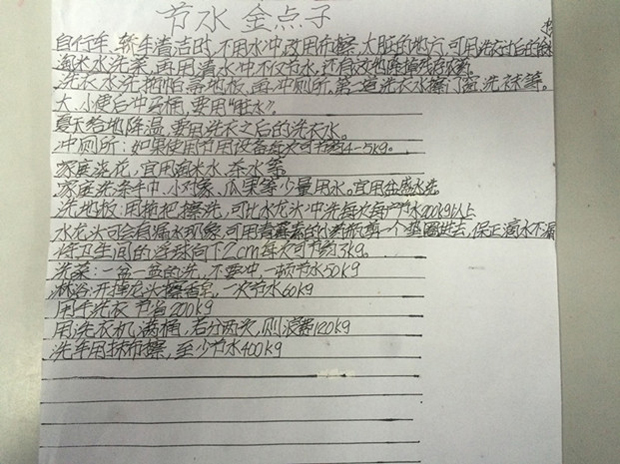 节水金点子
自行车、轿车清洁时,不用水冲改用布擦,太脏的地方,可用洗衣过后的
淘米水洗菜,再用清水冲不仅节水,还有效地清掉残存农药。
洗衣水洗拖帕、帚地板、再冲厕所,第二道洗衣水擦门窗、洗袜等。
大、小便后冲马桶,要用“旺水”。
夏天给地降温,要用洗衣之后的洗衣水。
冲厕所:如果使用节用设备每次可节约4-5kg。
家庭浇花,宜用淘米水、茶水等
家庭洗涤手巾、小对象、瓜果等少量用水,宜用盆盛水洗
洗地板:用拖把擦洗,可比水龙头冲洗每次每户节水200kg以上
水龙头可会有漏水现象,可用青霉素的小药瓶剪一个垫圈进去,保正滴水不漏
将卫生间的浮球向下2cm每次可节约3kg。
洗菜:一盆一盆的洗,不要冲,一顿节水50kg
淋浴:开掉龙头擦香皂,一次节水60kg
用手洗衣 节省200kg
用洗衣机,满桶,若分两次,则浪费120kg
洗车用抹布擦,至少节水400kg